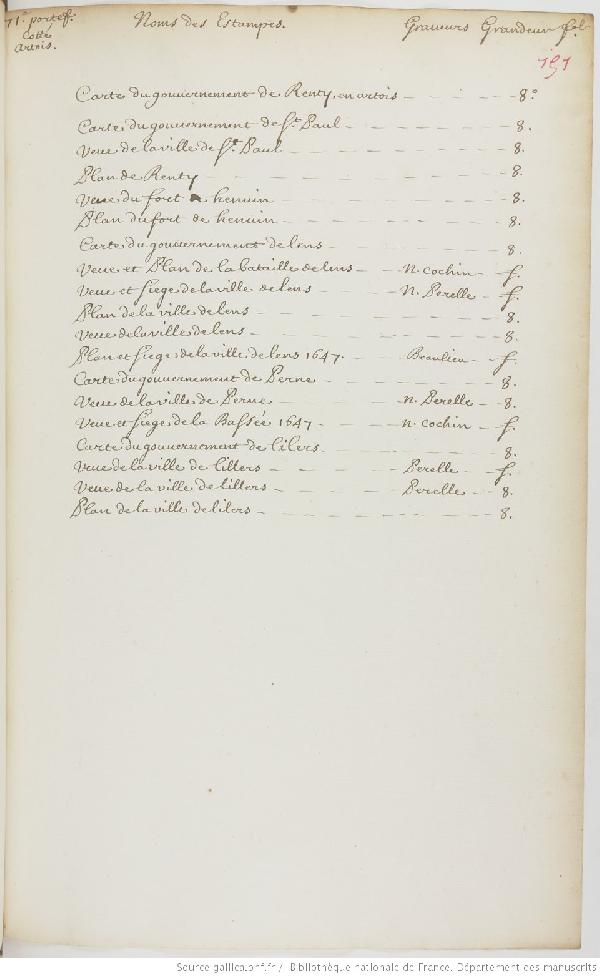 71.e portef. Noms des Estampes. Graveurs Grandeur fol.
Cotté
Artois.
151
Carte du gouvernement de Renty en artois — — — — 8.º
Carte du gouvernement de St. Paul — — — — 8.
Veue de la ville de St. Paul — — — — 8.
Plan de Renty — — — — 8.
Veue du fort de henuin — — — — 8.
Plan du fort de henuin — — — — 8.
Carte du gouvernement de lens — — — — 8.
Veue et Plan de la bataille de lens — — N. cochin — f.
Veue et siege de la ville de lens — — N. Perelle — f.
Plan de la ville de lens — — — — 8.
Veue de la ville de lens — — — — 8.
Plan et siege de la ville de lens 1647. — — Beaulieu — f.
Carte du gouvernement de Perne — — — — 8.
Veue de la ville de Perne — — n. Perelle — 8.
Veue et siege de la Bassée 1647 — — n. cochin — f.
Carte du gouvernement de lilers — — — — 8.
Veue de la ville de lillers — — Perelle — f.
Veue de la ville de lillers — — Perelle — 8.
Plan de la ville de lilers — — — — 8.
Source gallica.bnf.fr / Bibliothèque nationale de France. Département des manuscrits